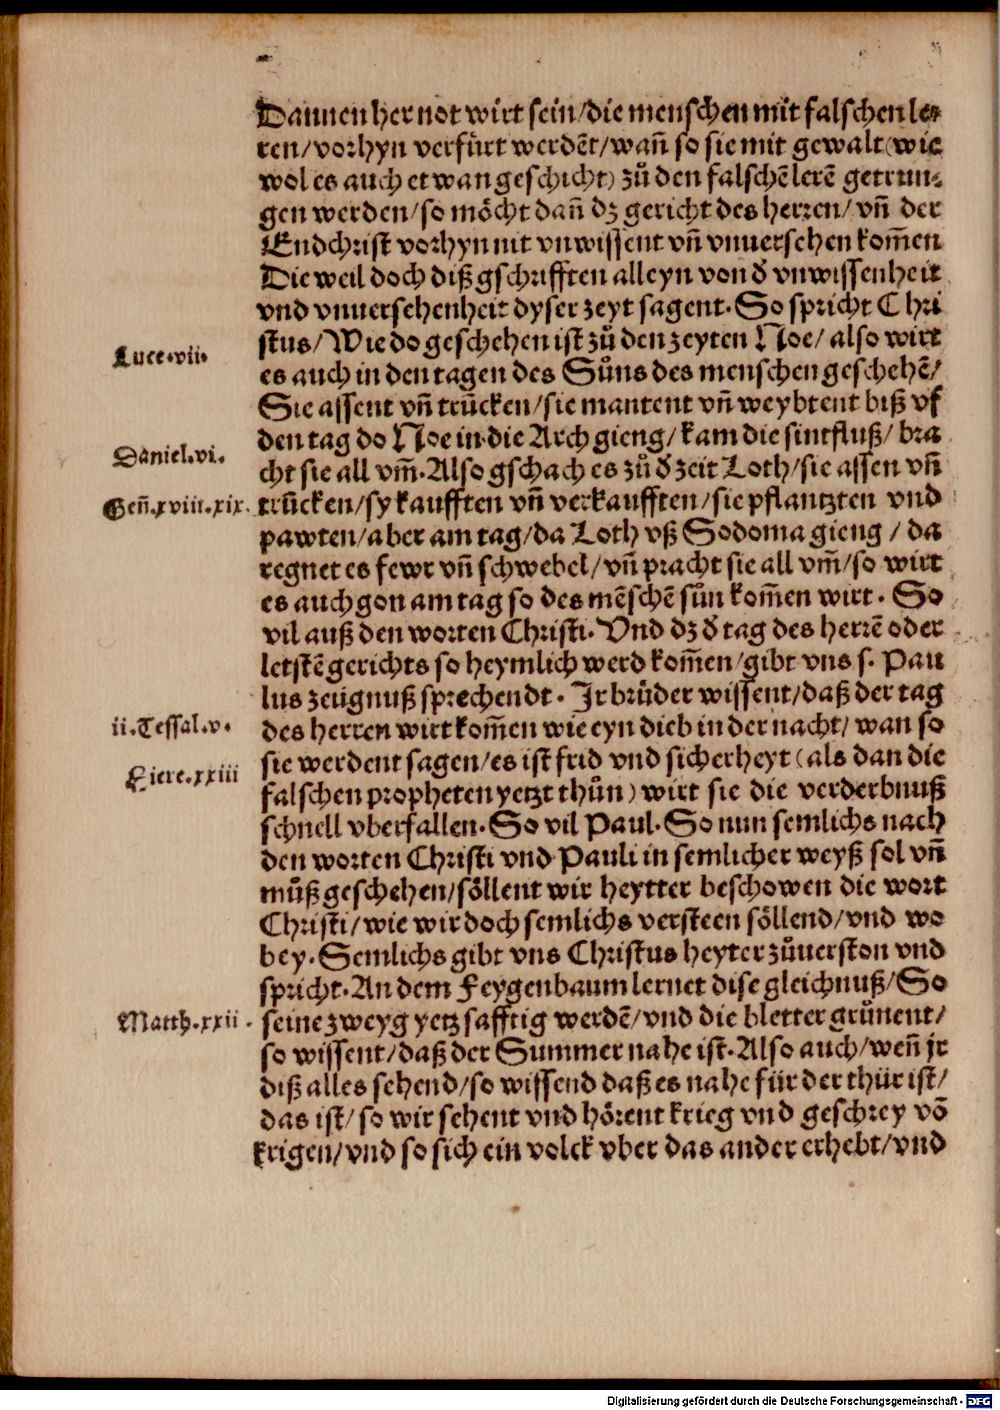 Dannen her not wirt sein/die menschen mit falschen le-
ren/vorhyn verfürt werdēt/wañ so sie mit gewalt(wie
wol es auch etwan geschicht) zů den falschē lerē getrun-
gen werden/so möcht dañ dz gericht des herren/vñ der
Endchrist vorhyn nit vnwissent vñ vnuersehen kom̄en
Die weil doch diß gschrifften alleyn von d̕ vnwissenheit
vnd vnuersehenheit dyser zeyt sagent. So spricht Chri
stus/Wie do geschehen ist zů den zeyten Noe/also wirt
Luce.vii.
es auch in den tagen des Sůns des menschen geschehē/
Sie assent vñ trūcken/sie mantent vñ weybtent biß vf
den tag do Noe in die Arch gieng/kam die sintfluß/bra
Daniel.vi.
cht sie all vm̄. Also gschach es zů d̕ zeit Loth/sie assen vñ
Geñ.xviii.xix.
trūcken/sy kaufften vñ verkaufften/sie pflantzten vnd
pawten/aber am tag/da Loth vß Sodoma gieng/da
regnet es fewr vñ schwebel/vñ pracht sie all vm̄/so wirt
es auch gon am tag so des mēschē sůn kom̄en wirt. So
vil auß den worten Christi. Vnd dz d̕ tag des herrē oder
letstē gerichts so heymlich werd kom̄en/gibt vns s. Pau
lus zeügnuß sprechendt. Ir brüder wissent/daß der tag
ii.Tessal.v.
des herren wirt kom̄en wie eyn dieb in der nacht/wan so
sie werdent sagen/es ist frid vnd sicherheyt(als dan die
Hiere.xxiii
falschen propheten yetzt thůn) wirt sie die verderbnuß
schnell vberfallen. So vil Paul. So nun semlichs nach
den worten Christi vnd Pauli in semlicher weyß sol vñ
můß geschehen/söllent wir heytter beschowen die wort
Christi/wie wir doch semlichs versteen söllend/vnd wo
bey. Semlichs gibt vns Christus heyter zůuerston vnd
spricht. An dem Feygenbaum lernet dise gleichnuß/So
Matth.xxii.
seine zweyg yetz safftig werdē/vnd die bletter grünent/
so wissent/daß der Summer nahe ist. Also auch/weñ jr
diß alles sehend/so wissend daß es nahe für der thür ist/
das ist/so wir sehent vnd hörent krieg vnd geschrey vō
krigen/vnd so sich ein volck vber das ander erhebt/vnd
Digitalisierung gefördert durch die Deutsche Forschungsgemeinschaft - DFG